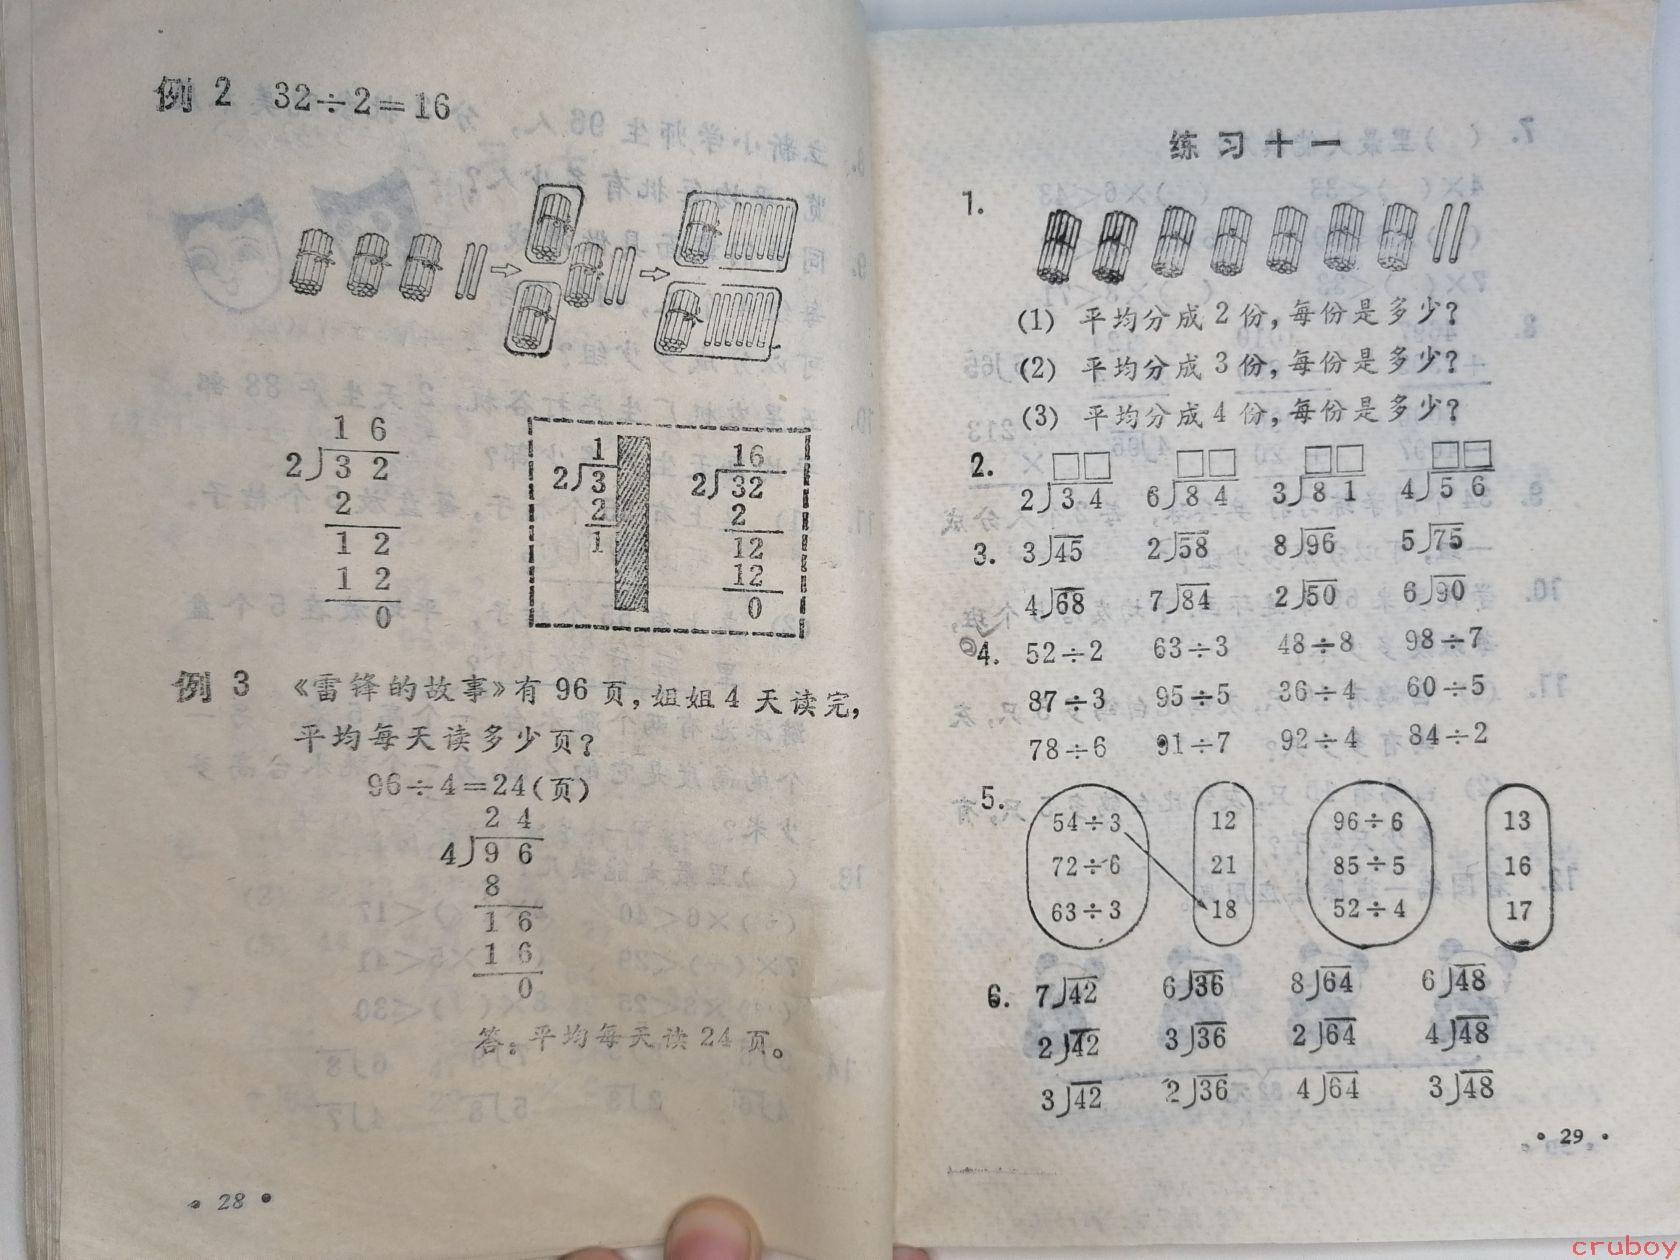 例 2 32÷2=16
1 6
2)3 2
2
1 2
1 2
0
1
2)3
2
1
16
2)32
2
12
12
0
例 3 《雷锋的故事》有 96 页,姐姐 4 天读完,
平均每天读多少页?
96÷4=24(页)
2 4
4)9 6
8
1 6
1 6
0
答:平均每天读 24 页。
• 28 •
练习十一
1.
(1) 平均分成 2 份,每份是多少?
(2) 平均分成 3 份,每份是多少?
(3) 平均分成 4 份,每份是多少?
2. □□ □□ □□ □□
2)3 4 6)8 4 3)8 1 4)5 6
3. 3)45 2)58 8)96 5)75
4)68 7)84 2)50 6)90
4. 52÷2 63÷3 48÷8 98÷7
87÷3 95÷5 36÷4 60÷5
78÷6 91÷7 92÷4 84÷2
5. 54÷3 12 96÷6 13
72÷6 21 85÷5 16
63÷3 18 52÷4 17
6. 7)42 6)36 8)64 6)48
2)42 3)36 2)64 4)48
3)42 2)36 4)64 3)48
• 29 •
cruboy